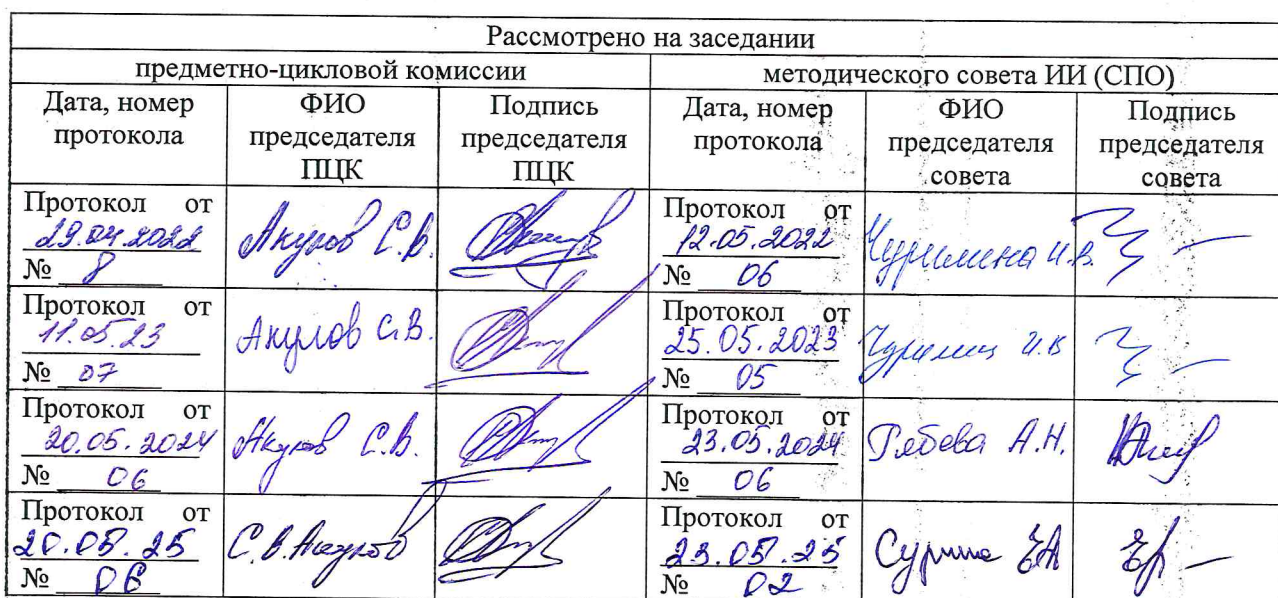 Рассмотрено на заседании
предметно-цикловой комиссии методического совета ИИ (СПО)
Дата, номер протокола ФИО председателя ПЦК Подпись председателя ПЦК Дата, номер протокола ФИО председателя совета Подпись председателя совета
Протокол от 29.04.2022 № 8 Акулов С.В. Протокол от 12.05.2022 № 06 Чурилина И.В.
Протокол от 11.05.23 № 07 Акулов С.В. Протокол от 25.05.2023 № 05 И.В
Протокол от 20.05.2024 № 06 Акулов С.В. Протокол от 23.05.2024 № 06 А.Н.
Протокол от 20.05.25 № 06 С.В. Акулов Протокол от 23.05.25 № 02 ЕА